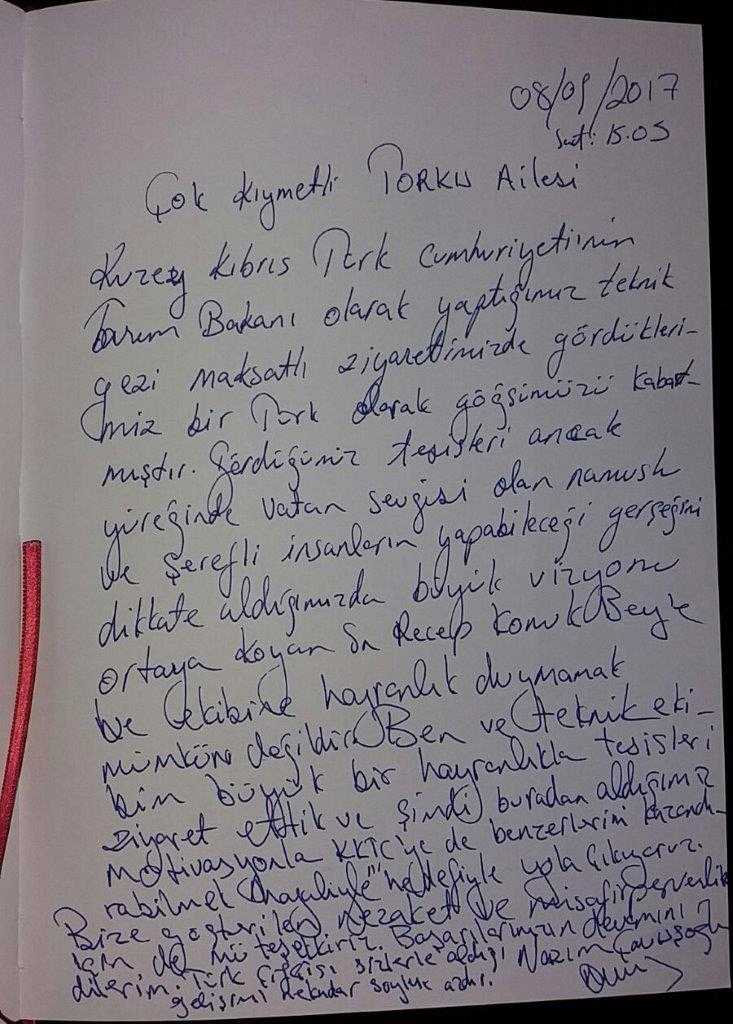 08/09/2017
Saat: 15.05
Çok Kıymetli TORKU Ailesi
Kuzey Kıbrıs Türk Cumhuriyetinin
Tarım Bakanı olarak yaptığımız teknik
gezi maksatlı ziyaretimizde gördükleri-
miz bir Türk olarak göğsümüzü kabart-
mıştır. Gördüğümüz tesisleri ancak
yüreğinde vatan sevgisi olan namuslu
ve şerefli insanların yapabileceği gerçeğini
dikkate aldığımızda büyük vizyonu
ortaya koyan Sn Recep Konuk Bey'e
ve ekibine hayranlık duymamak
mümkün değildir. Ben ve teknik eki-
bim büyük bir hayranlıkla tesisleri
ziyaret ettik ve şimdi buradan aldığımız
motivasyonla KKTC'ye de benzerlerini kazandı-
rabilmek hayaliyle "hedefiyle yola çıkıyoruz.
Bize gösterilen nezaket ve misafirperverlik
için de müteşekkiriz. Başarılarınızın devamını
dilerim. Türk çiftçisi sizlerle aldığı
gelişimi ne kadar
Nazım Çavuşoğlu